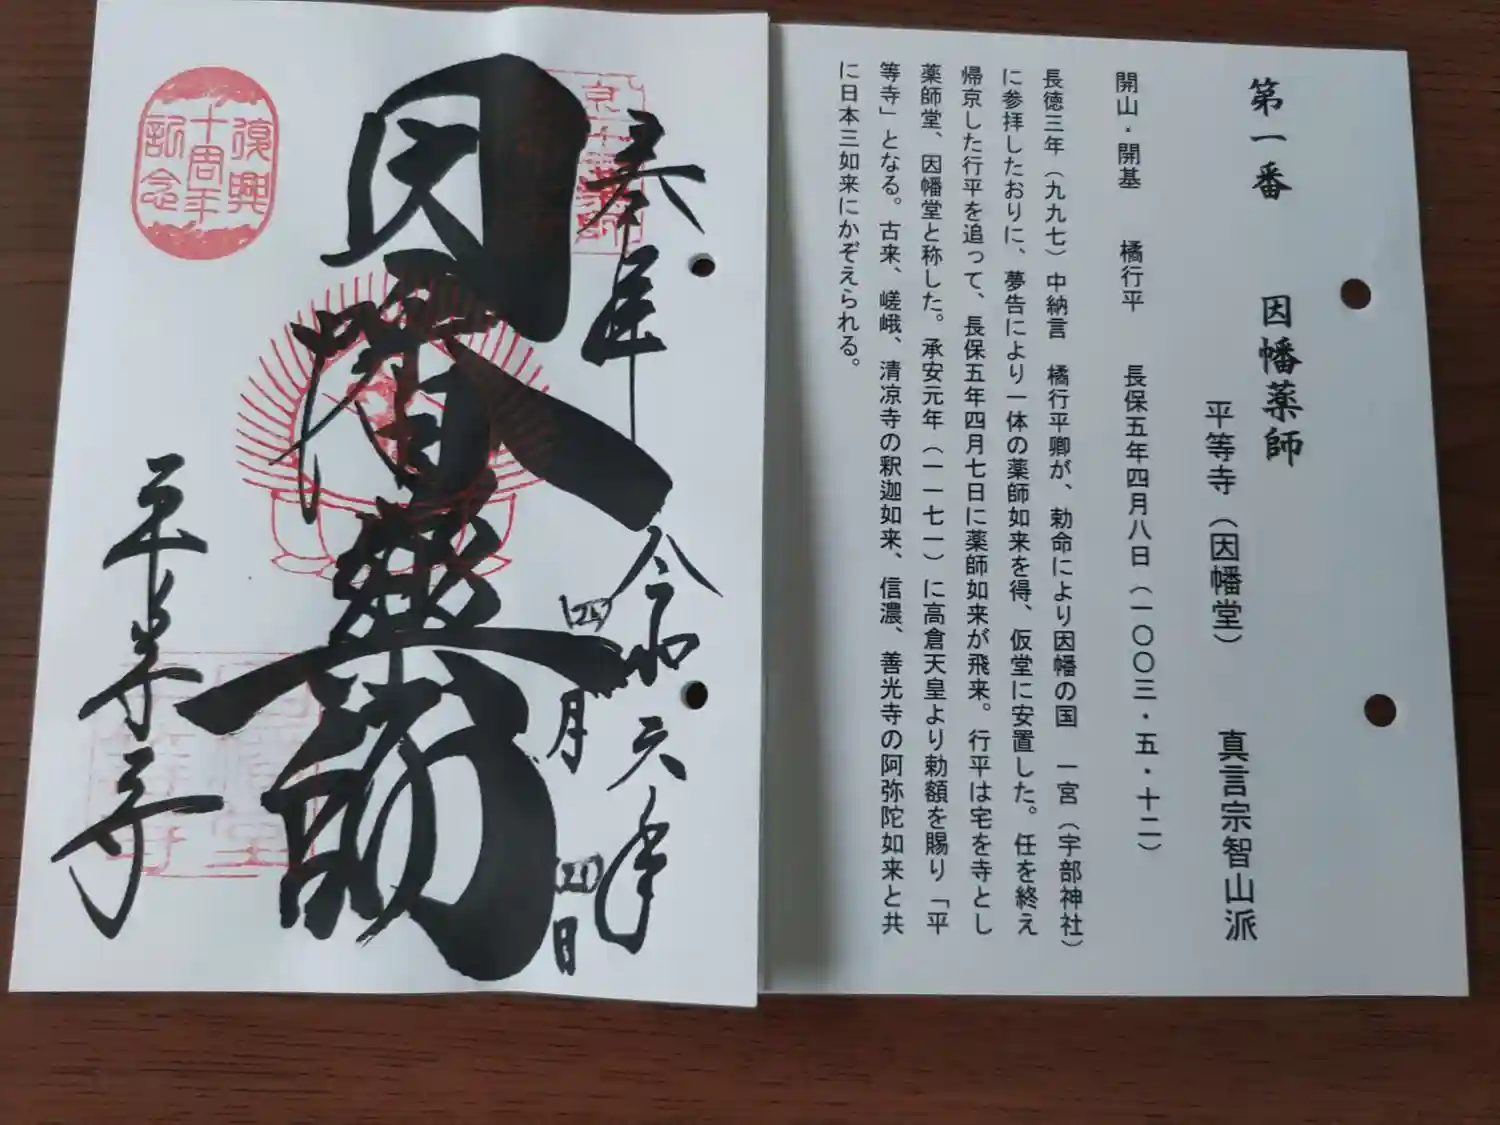 第一番 因幡薬師
平等寺（因幡堂） 真言宗智山派
開山・開基 橘行平 長保五年四月八日（一〇〇三・五・十二）
長徳三年（九九七）中納言 橘行平卿が、勅命により因幡の国 一宮（宇部神社）
に参拝したおりに、夢告により一体の薬師如来を得、仮堂に安置した。任を終え
帰京した行平を追って、長保五年四月七日に薬師如来が飛来。行平は宅を寺とし
薬師堂、因幡堂と称した。承安元年（一一七一）に高倉天皇より勅額を賜り「平
等寺」となる。古来、嵯峨、清凉寺の釈迦如来、信濃、善光寺の阿弥陀如来と共
に日本三如来にかぞえられる。
奉拝
令和六年
四月
四日
因幡薬師
平等寺
復興
十周年
記念